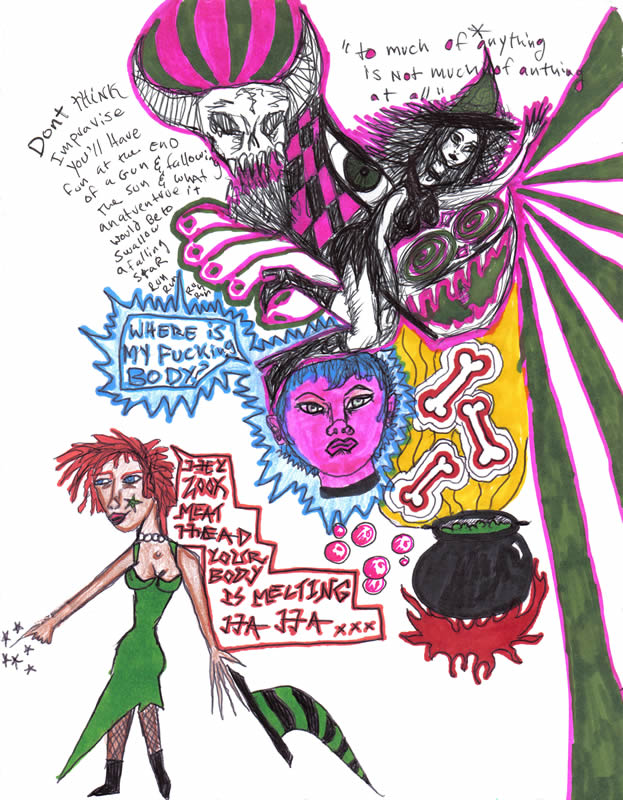 "to much of *anything
is not much of anthing
at all"
Dont THINK
Impravise
You'll Have
fun at the END
of a Gun & fallowing
the Sun & what
anatventure it
would Be to
Swallow
a falling
STAR
Run
Run
Run
Run
WHERE IS
MY FUCKing
BODY?
HEY
LOOK
MEAT
HEAD
YOUR
BODY
IS MELTING
HA HA xxx